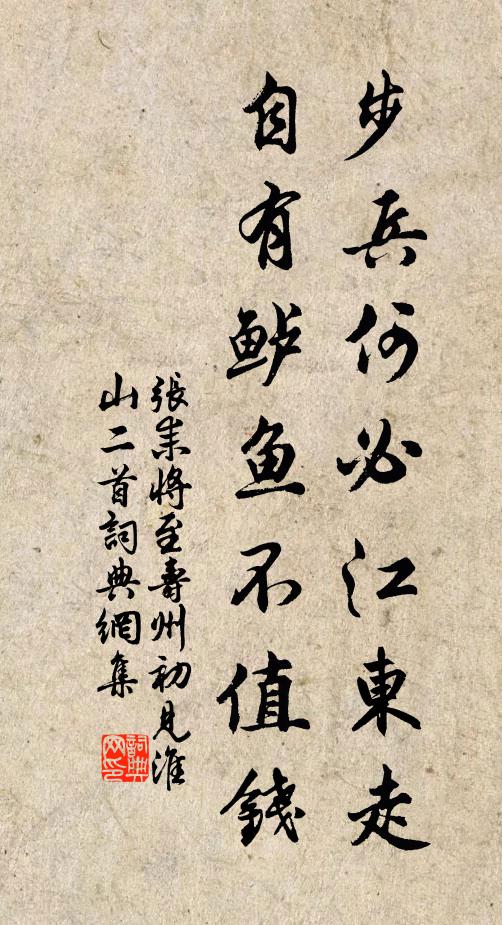 步兵何必江東走
自有鲈鱼不值錢
張耒將至壽州初見淮
山二首詞典網集
詞典
网印